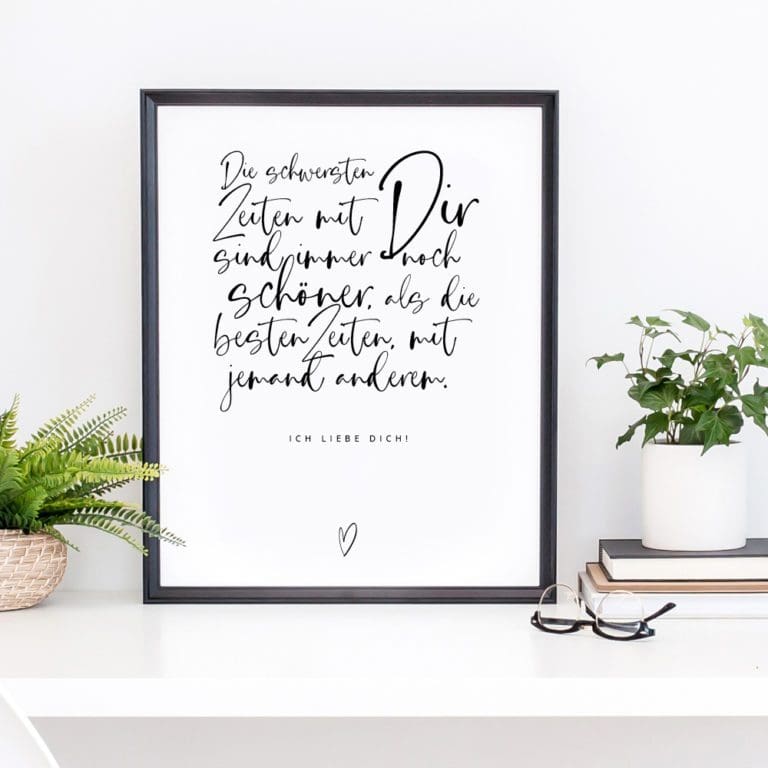 Die schwersten
Zeiten mit Dir
sind immer noch
schöner, als die
besten Zeiten, mit
jemand anderem.
ICH LIEBE DICH!